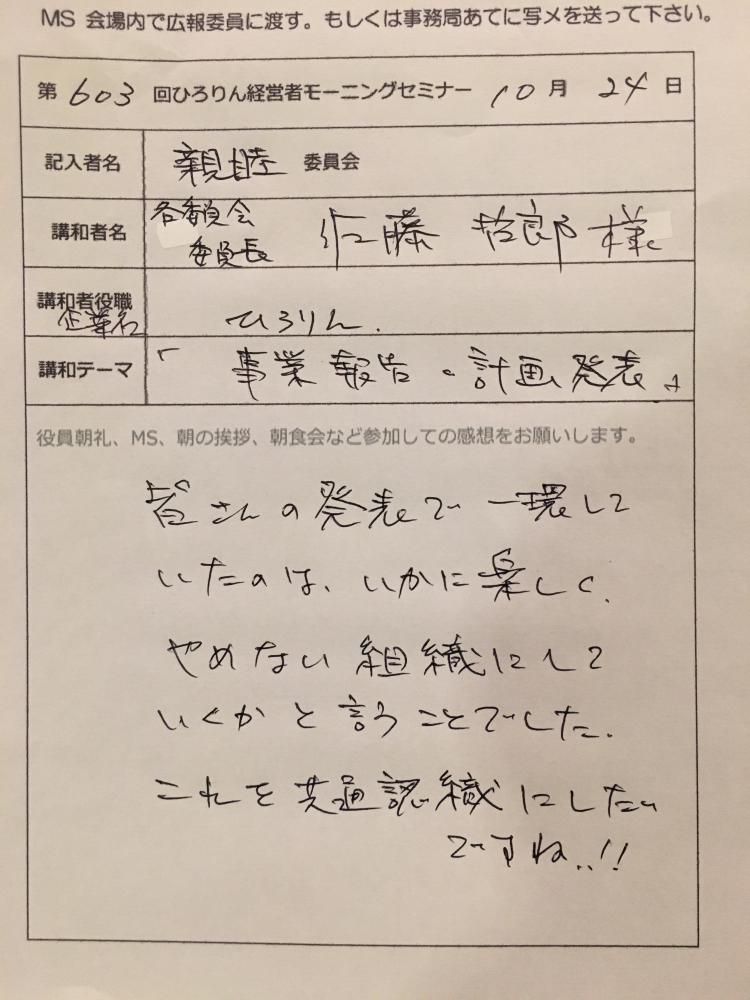 MS 会場内で広報委員に渡す。もしくは事務局あてに写メを送って下さい。
第 603 回ひろりん経営者モーニングセミナー 10 月 24 日
記入者名 親睦 委員会
講和者名 各委員会 委員長 佐藤 哲郎 様
講和者役職 企業名 ひろりん.
講和テーマ 「事業報告・計画発表」
役員朝礼、MS、朝の挨拶、朝食会など参加しての感想をお願いします。
皆さんの発表で一環して
いたのは、いかに楽しく、
やめない組織にして
いくかと言うことでした.
これを共通認織にしたい
ですね..!!